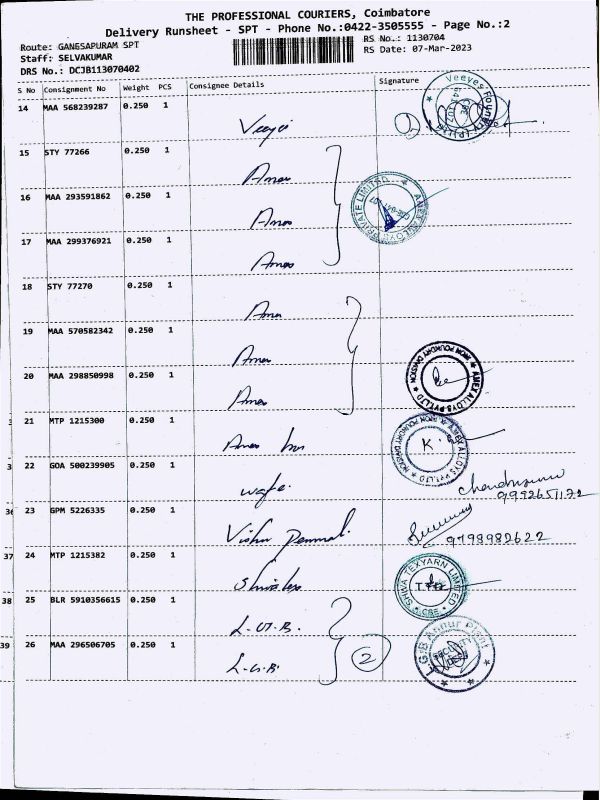 THE PROFESSIONAL COURIERS, Coimbatore
Delivery Runsheet - SPT - Phone No.:0422-3505555 - Page No.:2
Route: GANESAPURAM SPT
RS No.: 1130704
Staff: SELVAKUMAR
RS Date: 07-Mar-2023
DRS No.: DCJB113070402
S No Consignment No Weight PCS Consignee Details Signature
14 MAA 568239287 0.250 1
Veeyes Foundry (P) Ltd
15 STY 77266 0.250 1
Amex
16 MAA 293591862 0.250 1
AMEX ALLOYS PRIVATE LIMITED
Amex
17 MAA 299376921 0.250 1
Amex
18 STY 77270 0.250 1
Amex
19 MAA 570582342 0.250 1
Amex
20 MAA 298850998 0.250 1
AMEX ALLOYS PVT LTD IRON FOUNDRY DIVISION
Amex
21 MTP 1215300 0.250 1
AMEX ALLOYS PVT LTD IRON FOUNDRY DIVISION
K.
Amex
22 GOA 500239905 0.250 1
9992651172
36 23 GPM 5226335 0.250 1
Vishnu
9798982622
37 24 MTP 1215382 0.250 1
SHIVA TEXYARN LIMITED CBE
38 25 BLR 5910356615 0.250 1
L.G.B.
39 26 MAA 296506705 0.250 1
L.G.B Annur Plant
SECURITY
L.G.B.
2